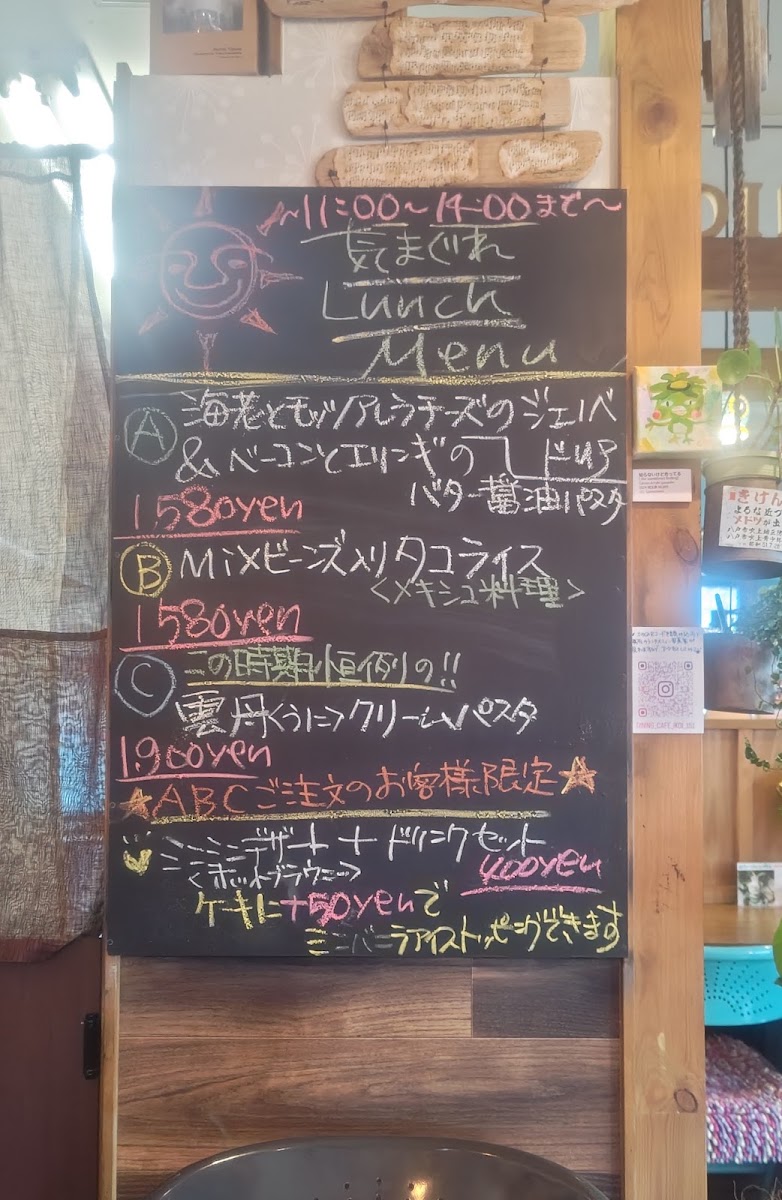 ~11:00~14:00まで~
気まぐれ
Lunch
Menu
A 海老とモッツァレラチーズのジェノベ
&ベーコンとエリンギの ドリア
バター醤油パスタ
1580yen
B Mixビーンズ入りタコライス
<メキシコ料理>
1580yen
C この時期恒例の!!
雲丹<うに>クリームパスタ
1900yen
☆ABCご注文のお客様限定☆
ミニデザート+ドリンクセット
<ホットブラウニー>
400yen
ケーキに+50yenで
ミニバニラアイストッピングできます
きけん
メドツが出